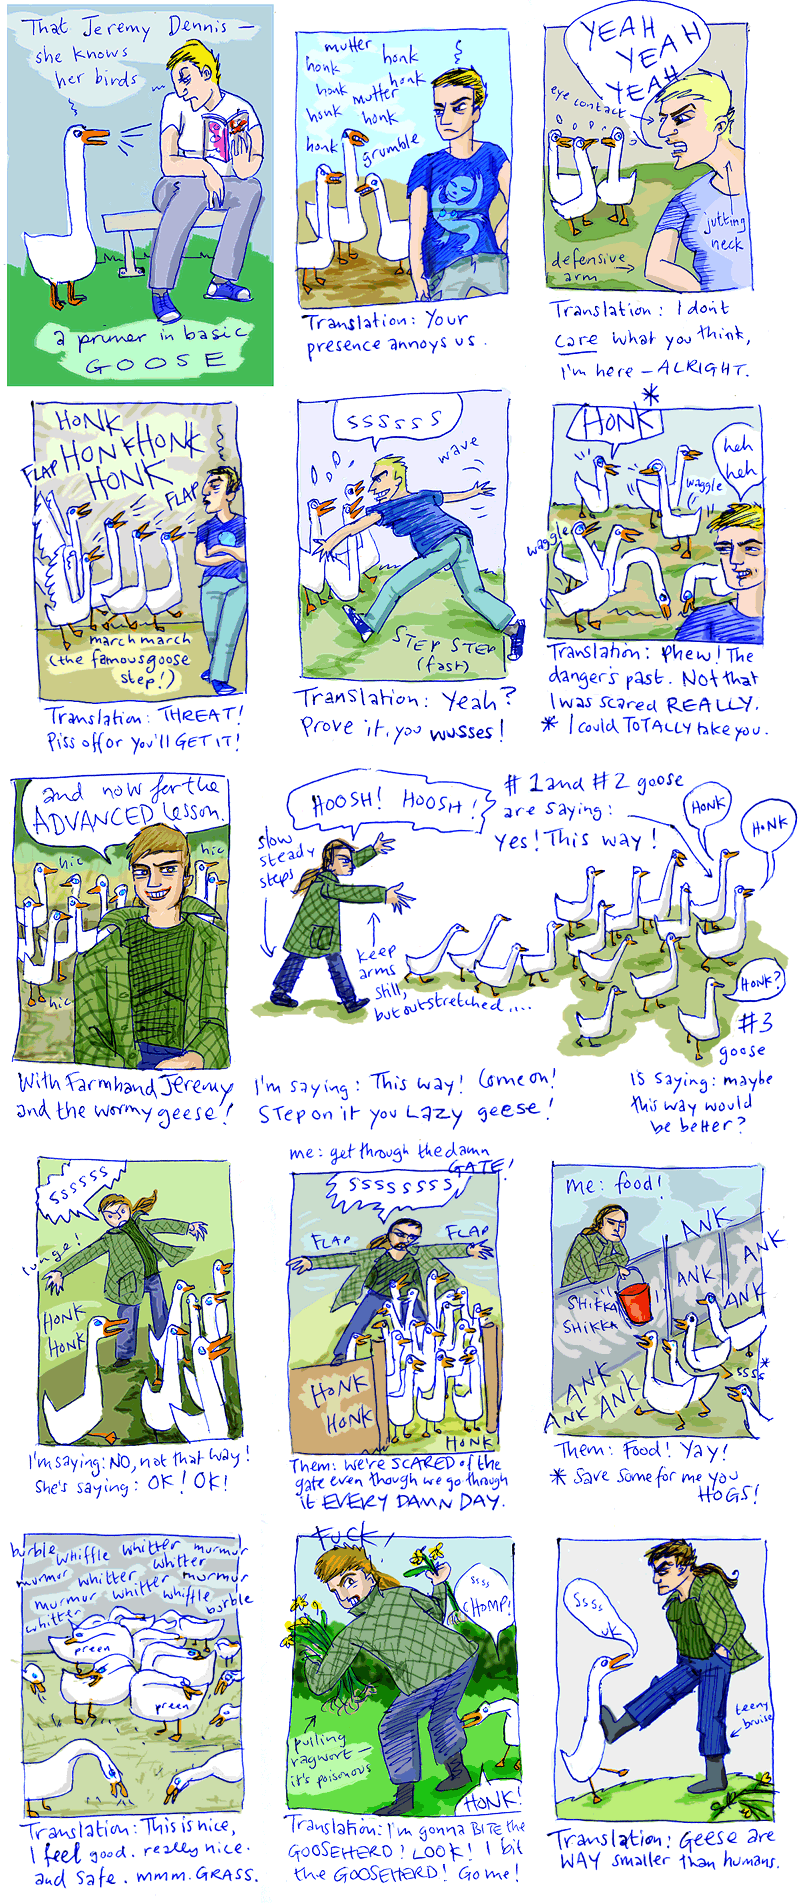 That Jeremy Dennis —
she knows
her birds
a primer in basic
GOOSE
mutter
honk
honk
honk
honk
mutter
honk
honk
honk
grumble
Translation: Your
presence annoys us.
YEAH
YEAH
YEAH
eye contact
jutting
neck
defensive
arm
Translation: I don't
care what you think,
I'm here — ALRIGHT.
HONK
HONK HONK
HONK
FLAP
FLAP
march march
(the famous goose
step!)
Translation: THREAT!
Piss off or you'll GET IT!
ssssss
wave
STEP STEP
(fast)
Translation: Yeah?
Prove it, you wusses!
*
HONK
heh
heh
waggle
waggle
Translation: Phew! The
danger's past. Not that
I was scared REALLY.
* I could TOTALLY take you.
and now for the
ADVANCED lesson.
hic
hic
hic
With Farmhand Jeremy
and the wormy geese!
HOOSH! HOOSH!
slow
steady
steps
keep
arms
still,
but outstretched....
I'm saying: This way! Come on!
Step on it you LAZY geese!
#1 and #2 goose
are saying:
yes! This way!
HONK
HONK
HONK?
#3
goose
is saying: maybe
this way would
be better?
ssssss
lunge!
HONK
HONK
I'm saying: NO, not that way!
She's saying: OK! OK!
me: get through the damn
GATE!
ssssssss
FLAP
FLAP
HONK
HONK
HONK
Them: We're SCARED of the
gate even though we go through
it EVERY DAMN DAY.
me: food!
ANK
ANK
ANK
ANK
SHIKKA
SHIKKA
ANK
ANK ANK
ssss*
Them: Food! Yay!
* Save some for me you
HOGS!
burble whiffle whitter murmur
whitter
murmur whitter murmur
murmur whitter whiffle
whitter burble
preen
preen
Translation: This is nice,
I feel good. really nice.
and safe. mmm. GRASS.
FUCK!
ssss
CHOMP!
pulling
ragwort —
it's poisonous
HONK!
Translation: I'm gonna BITE the
GOOSEHERD! LOOK! I bit
the GOOSEHERD! Go me!
ssss
uk
teeny
bruise
Translation: Geese are
WAY smaller than humans.